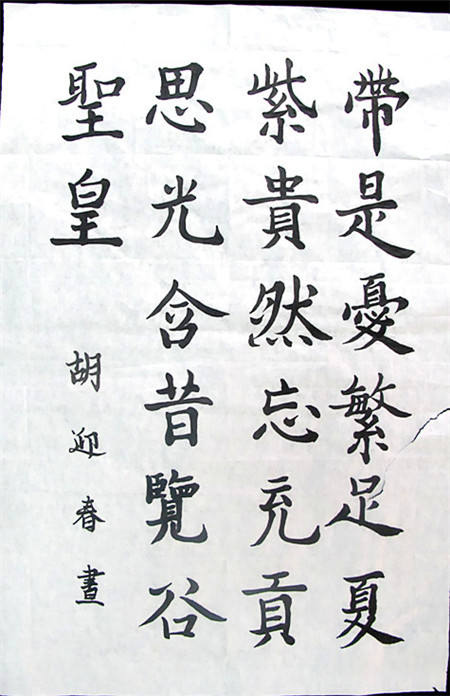 帶是憂繁足夏
紫貴然忘充貢
思光含昔覽谷
聖皇
胡迎春書